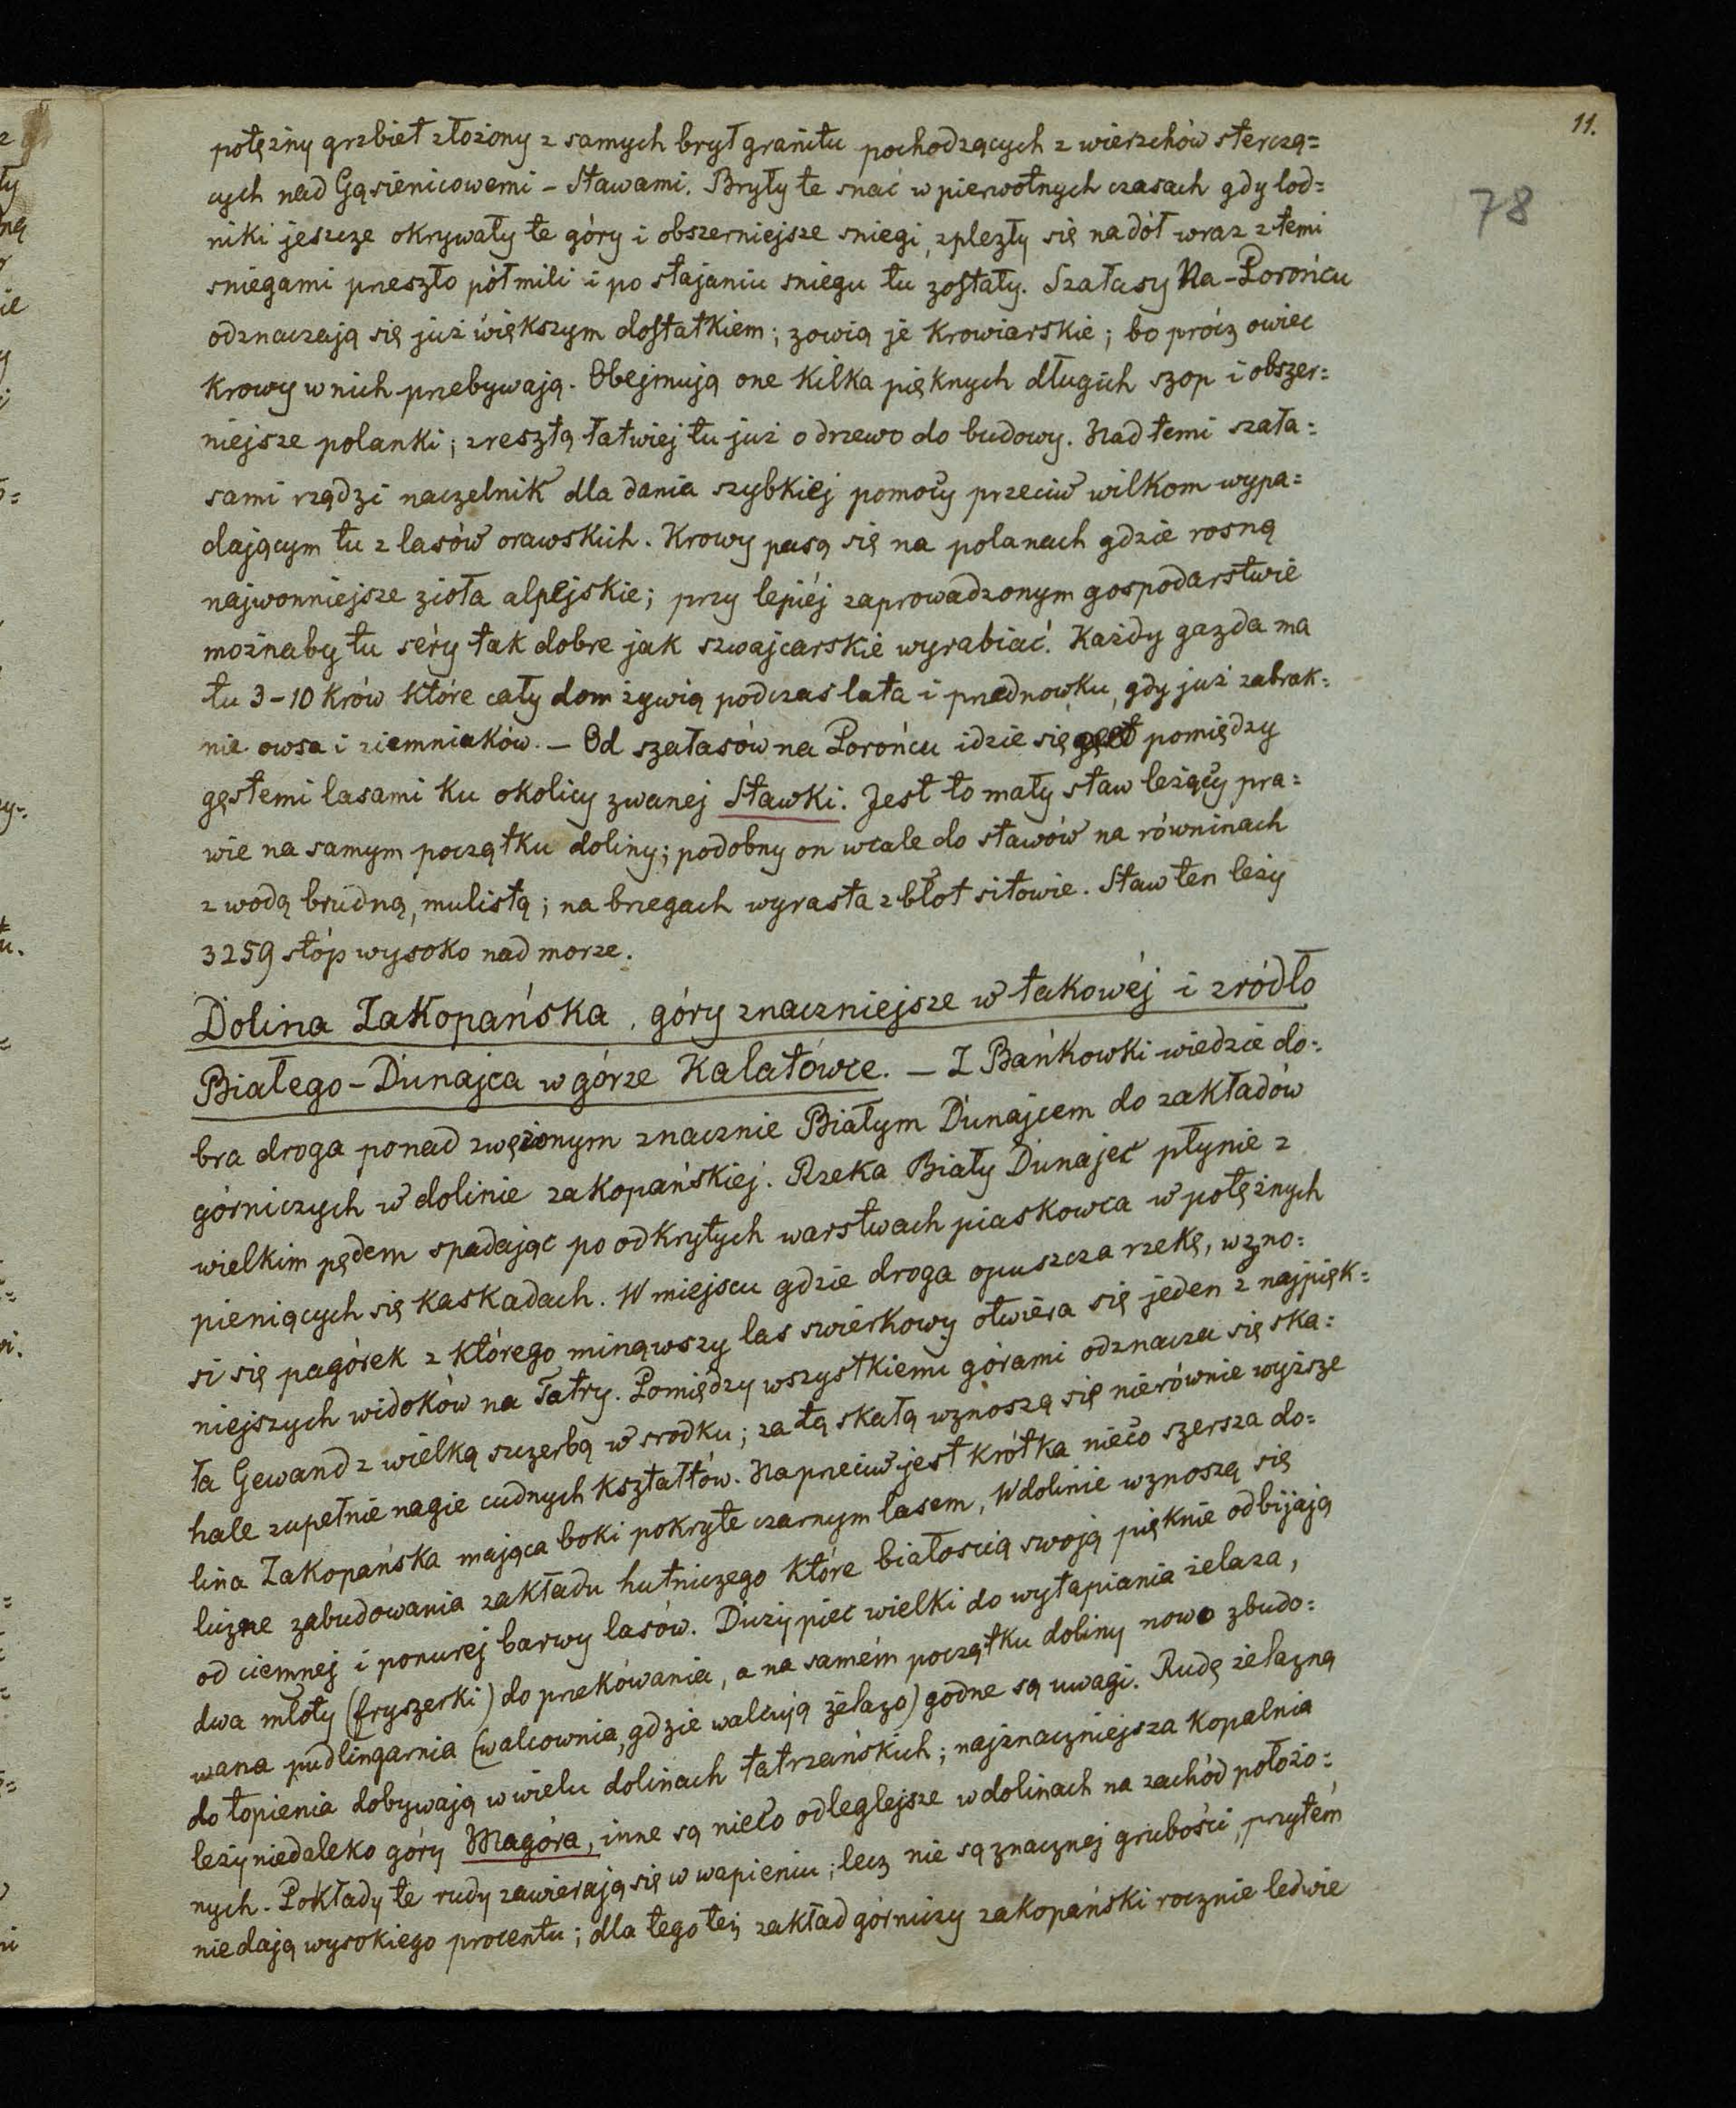 11.
78
potężny grzbiet złożony z samych brył granitu pochodzących z wierzchów sterczą=
cych nad Gąsienicowemi-Stawami. Bryły te snać w pierwotnych czasach gdy lod=
niki jeszcze okrywały te góry i obszerniejsze sniegi, zplezły się na dół wraz z temi
sniegami przeszło półmili i po stajaniu sniegu tu zostały. Szałasy Na-Porońcu
odznaczają się już większym dostatkiem; zowią je krowiarskie; bo prócz owiec
krowy w nich przebywają. Obejmują one kilka pięknych długich szop i obszer=
niejsze polanki; zresztą łatwiej tu już o drzewo do budowy. Nad temi szała=
sami rządzi naczelnik dla dania szybkiej pomocy przeciw wilkom wypa=
dającym tu z lasów orawskich. Krowy pasą się na polanach gdzie rosną
najwonniejsze zioła alpejskie; przy lepiéj zaprowadzonym gospodarstwie
możnaby tu séry tak dobre jak szwajcarskie wyrabiać. Każdy gazda ma
tu 3-10 krów które cały dom żywią podczas lata i przednowku, gdy już zabrak=
nie owsa i ziemniaków. – Od szałasów na Porońcu idzie się pomiędzy
gęstemi lasami ku okolicy zwanej Stawki. Jest to mały staw leżący pra=
wie na samym początku doliny; podobny on wcale do stawów na równinach
z wodą brudną, mulistą; na brzegach wyrasta z błot sitowie. Staw ten leży
3259 stóp wysoko nad morze.
Dolina Zakopańska, góry znaczniejsze w takowéj i zródło
Białego-Dunajca w górze Kalatówce. – Z Bańkowki wiedzie do=
bra droga ponad zwężonym znacznie Białym Dunajcem do zakładów
górniczych w dolinie zakopańskiej. Rzeka Biały Dunajec płynie z
wielkim pędem spadając po odkrytych warstwach piaskowca w potężnych
pieniących się kaskadach. W miejscu gdzie droga opuszcza rzekę, wzno=
si się pagórek z którego minąwszy las swierkowy otwiéra się jeden z najpięk=
niejszych widoków na Tatry. Pomiędzy wszystkiemi górami odznacza się ska=
ła Gewand z wielką szczerbą w srodku; za tą skałą wznoszą się nierównie wyższe
hale zupełnie nagie cudnych kształtów. Naprzeciw jest krótka nieco szersza do=
lina Zakopańska mająca boki pokryte czarnym lasem, W dolinie wznoszą się
liczne zabudowania zakładu hutniczego które białoscią swoją pięknie odbijają
od ciemnej i ponurej barwy lasów. Duży piec wielki do wytapiania żelaza,
dwa młoty (fryszerki) do przekówania, a na samém początku doliny nowo zbudo=
wana pudlingarnia (walcownia, gdzie walcują żelazo) godne są uwagi. Rudę żelazną
do topienia dobywają w wielu dolinach tatrzańskich; najznaczniejsza kopalnia
leży niedaleko góry Magóra, inne są nieco odleglejsze w dolinach na zachód położo=
nych. Pokłady te rudy zawierają się w wapieniu; lecz nie są znacznej grubości, przytém
nie dają wysokiego procentu; dla tego też zakład górniczy zakopański rocznie ledwie